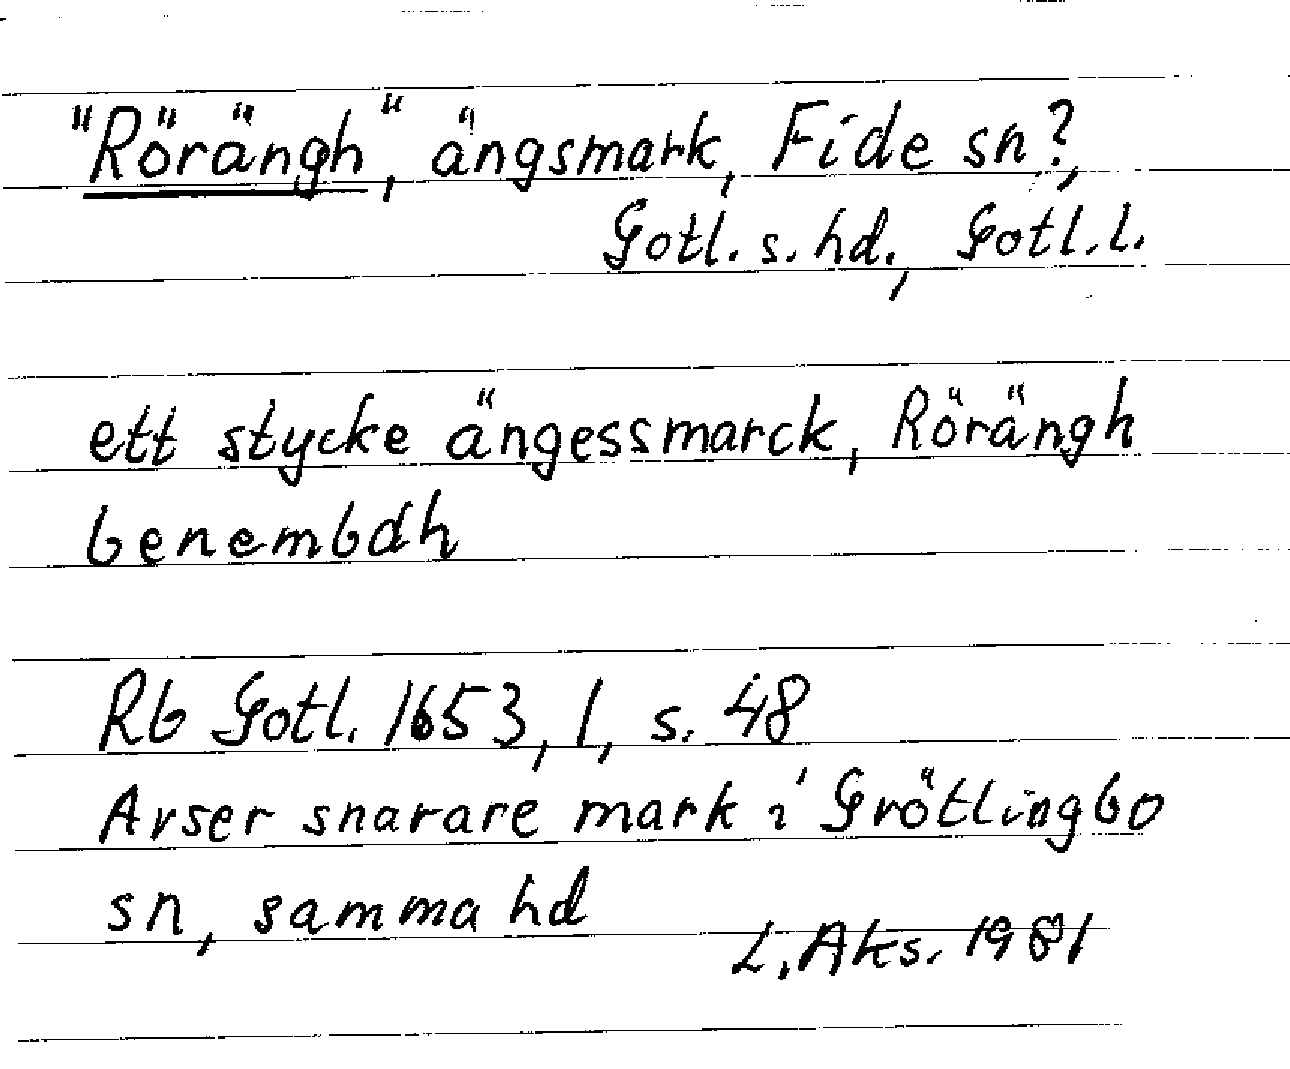 "Rörängh", ängsmark, Fide sn?,
Gotl. s. hd., Gotl. l.
ett stycke ängessmarck, Rörängh
benembdh
Rb Gotl. 1653, 1, s. 48
Avser snarare mark i Grötlingbo
sn, samma hd
L. Aks. 1981